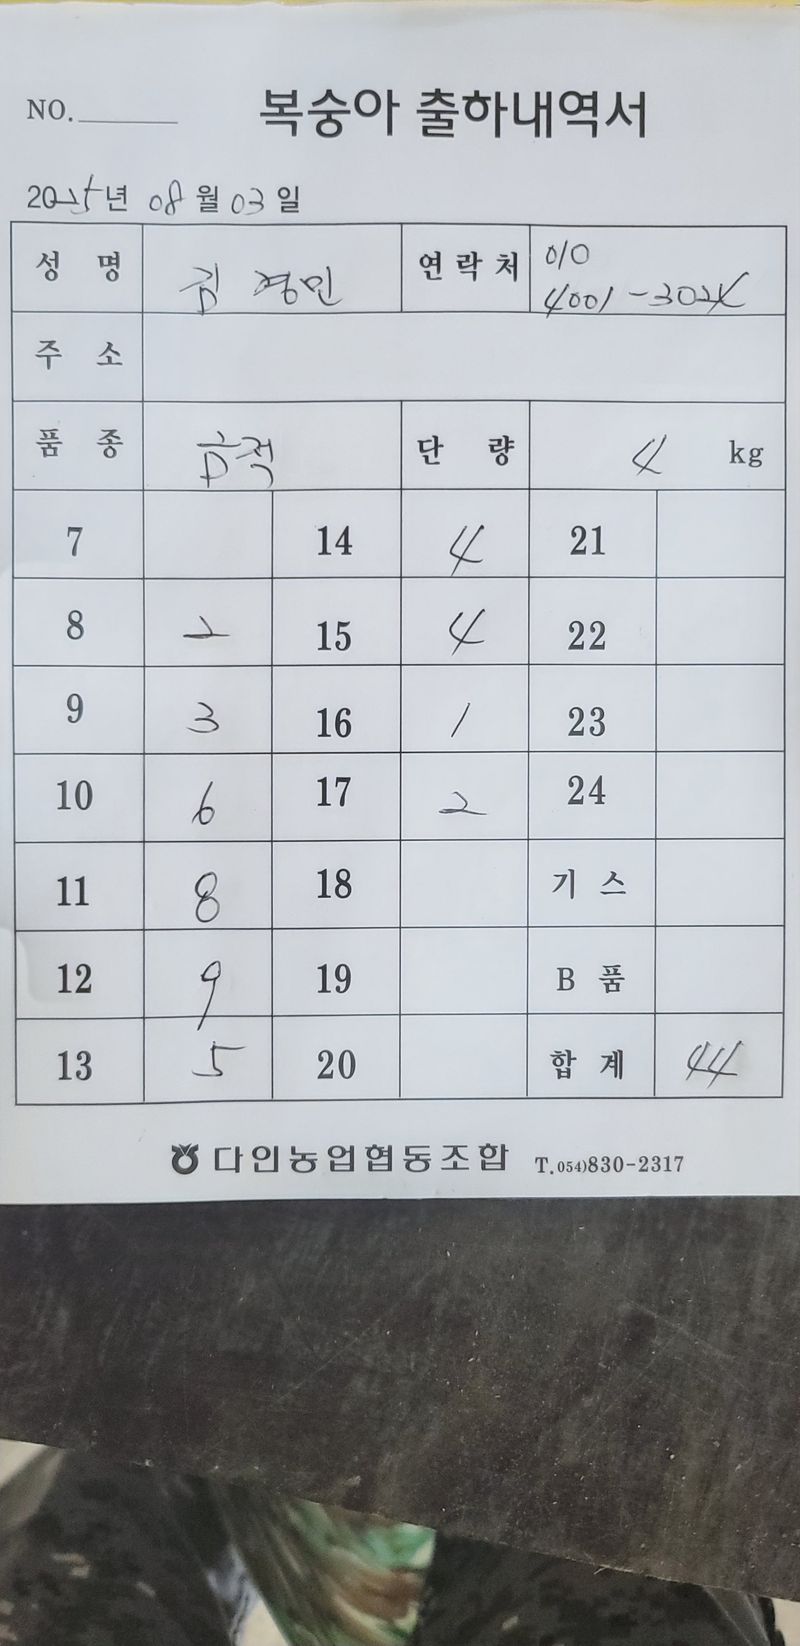 NO.
복숭아 출하내역서
2025년 08월 03일
성 명 김경민 연락처 010
4001-3024
주 소
품 종 단 량 4 kg
7 14 4 21
8 2 15 4 22
9 3 16 1 23
10 6 17 2 24
11 8 18 기스
12 9 19 B품
13 5 20 합계 44
다인농업협동조합 T.054)830-2317